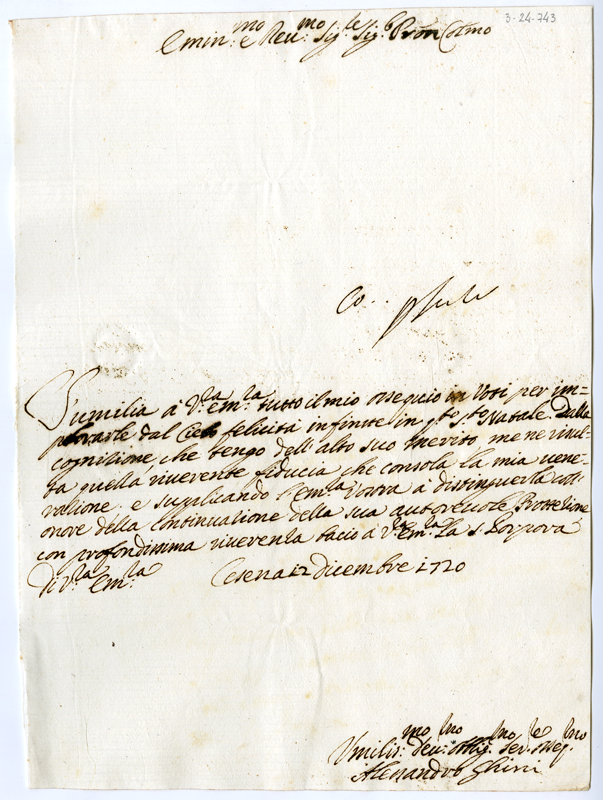 3-24-743
Emin.mo e Reu.mo Sig.re Sig.r Pron Colmo
Co..
S'umilia à V.ra Em.za tutto il mio ossequio in Voti per im=
plorarle dal Cielo felicità infinite in q.to S.to Natale. Dalla
cognitione, che tengo dell'alto suo merito me ne risul=
ta quella riuerente fiducia che consola la mia uene=
ratione. e suplicando l'Em.za Vostra à distinguerla coll'
onore della continuatione della sua autoreuole Protetione
con profondissima riuerenza bacio à V.ra Em.za la S. Porpora
Di V.ra Em.za Cesena 12 Dicembre 1720
Vmilis.mo Deu.mo Obblig.mo Ser.re Osseq.mo
Alessandro Ghini